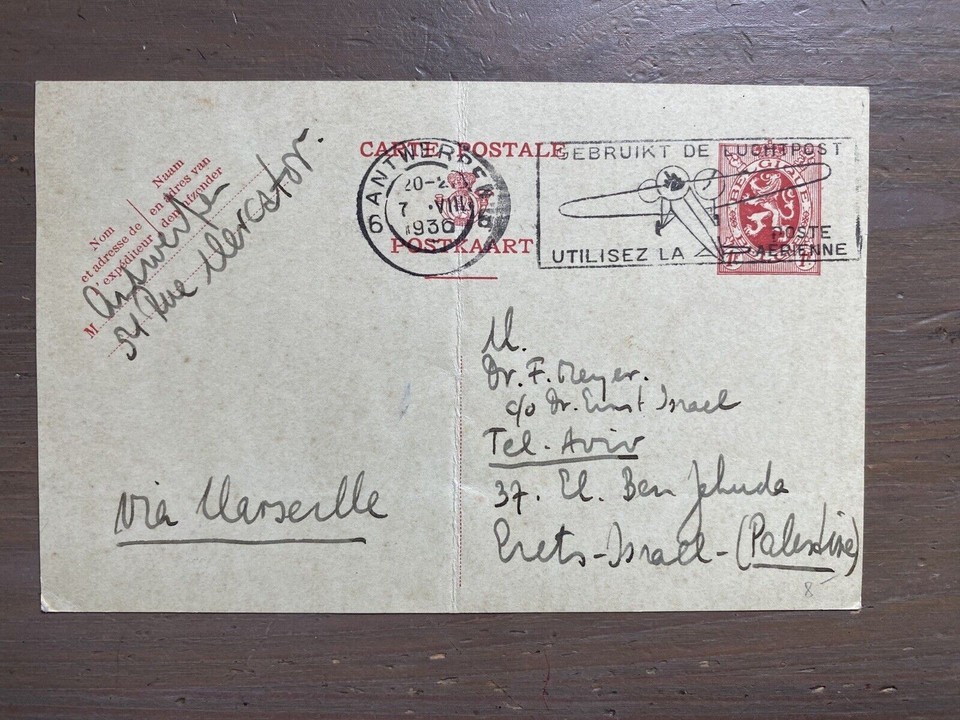 CARTE POSTALE
POSTKAART
6 ANTWERPEN 6
7 .VIII
1936
GEBRUIKT DE LUCHTPOST
UTILISEZ LA POSTE AERIENNE
BELGIQUE
Nom
et adresse de
l'expéditeur
Naam
en adres van
den afzender
M. Antwerpen
54 Rue Mercator.
M.
Dr. F. Meyer.
c/o Dr. Ernst Israel
Tel-Aviv
37. El. Ben Jehuda
Erets-Israel-(Palestine)
via Marseille
8